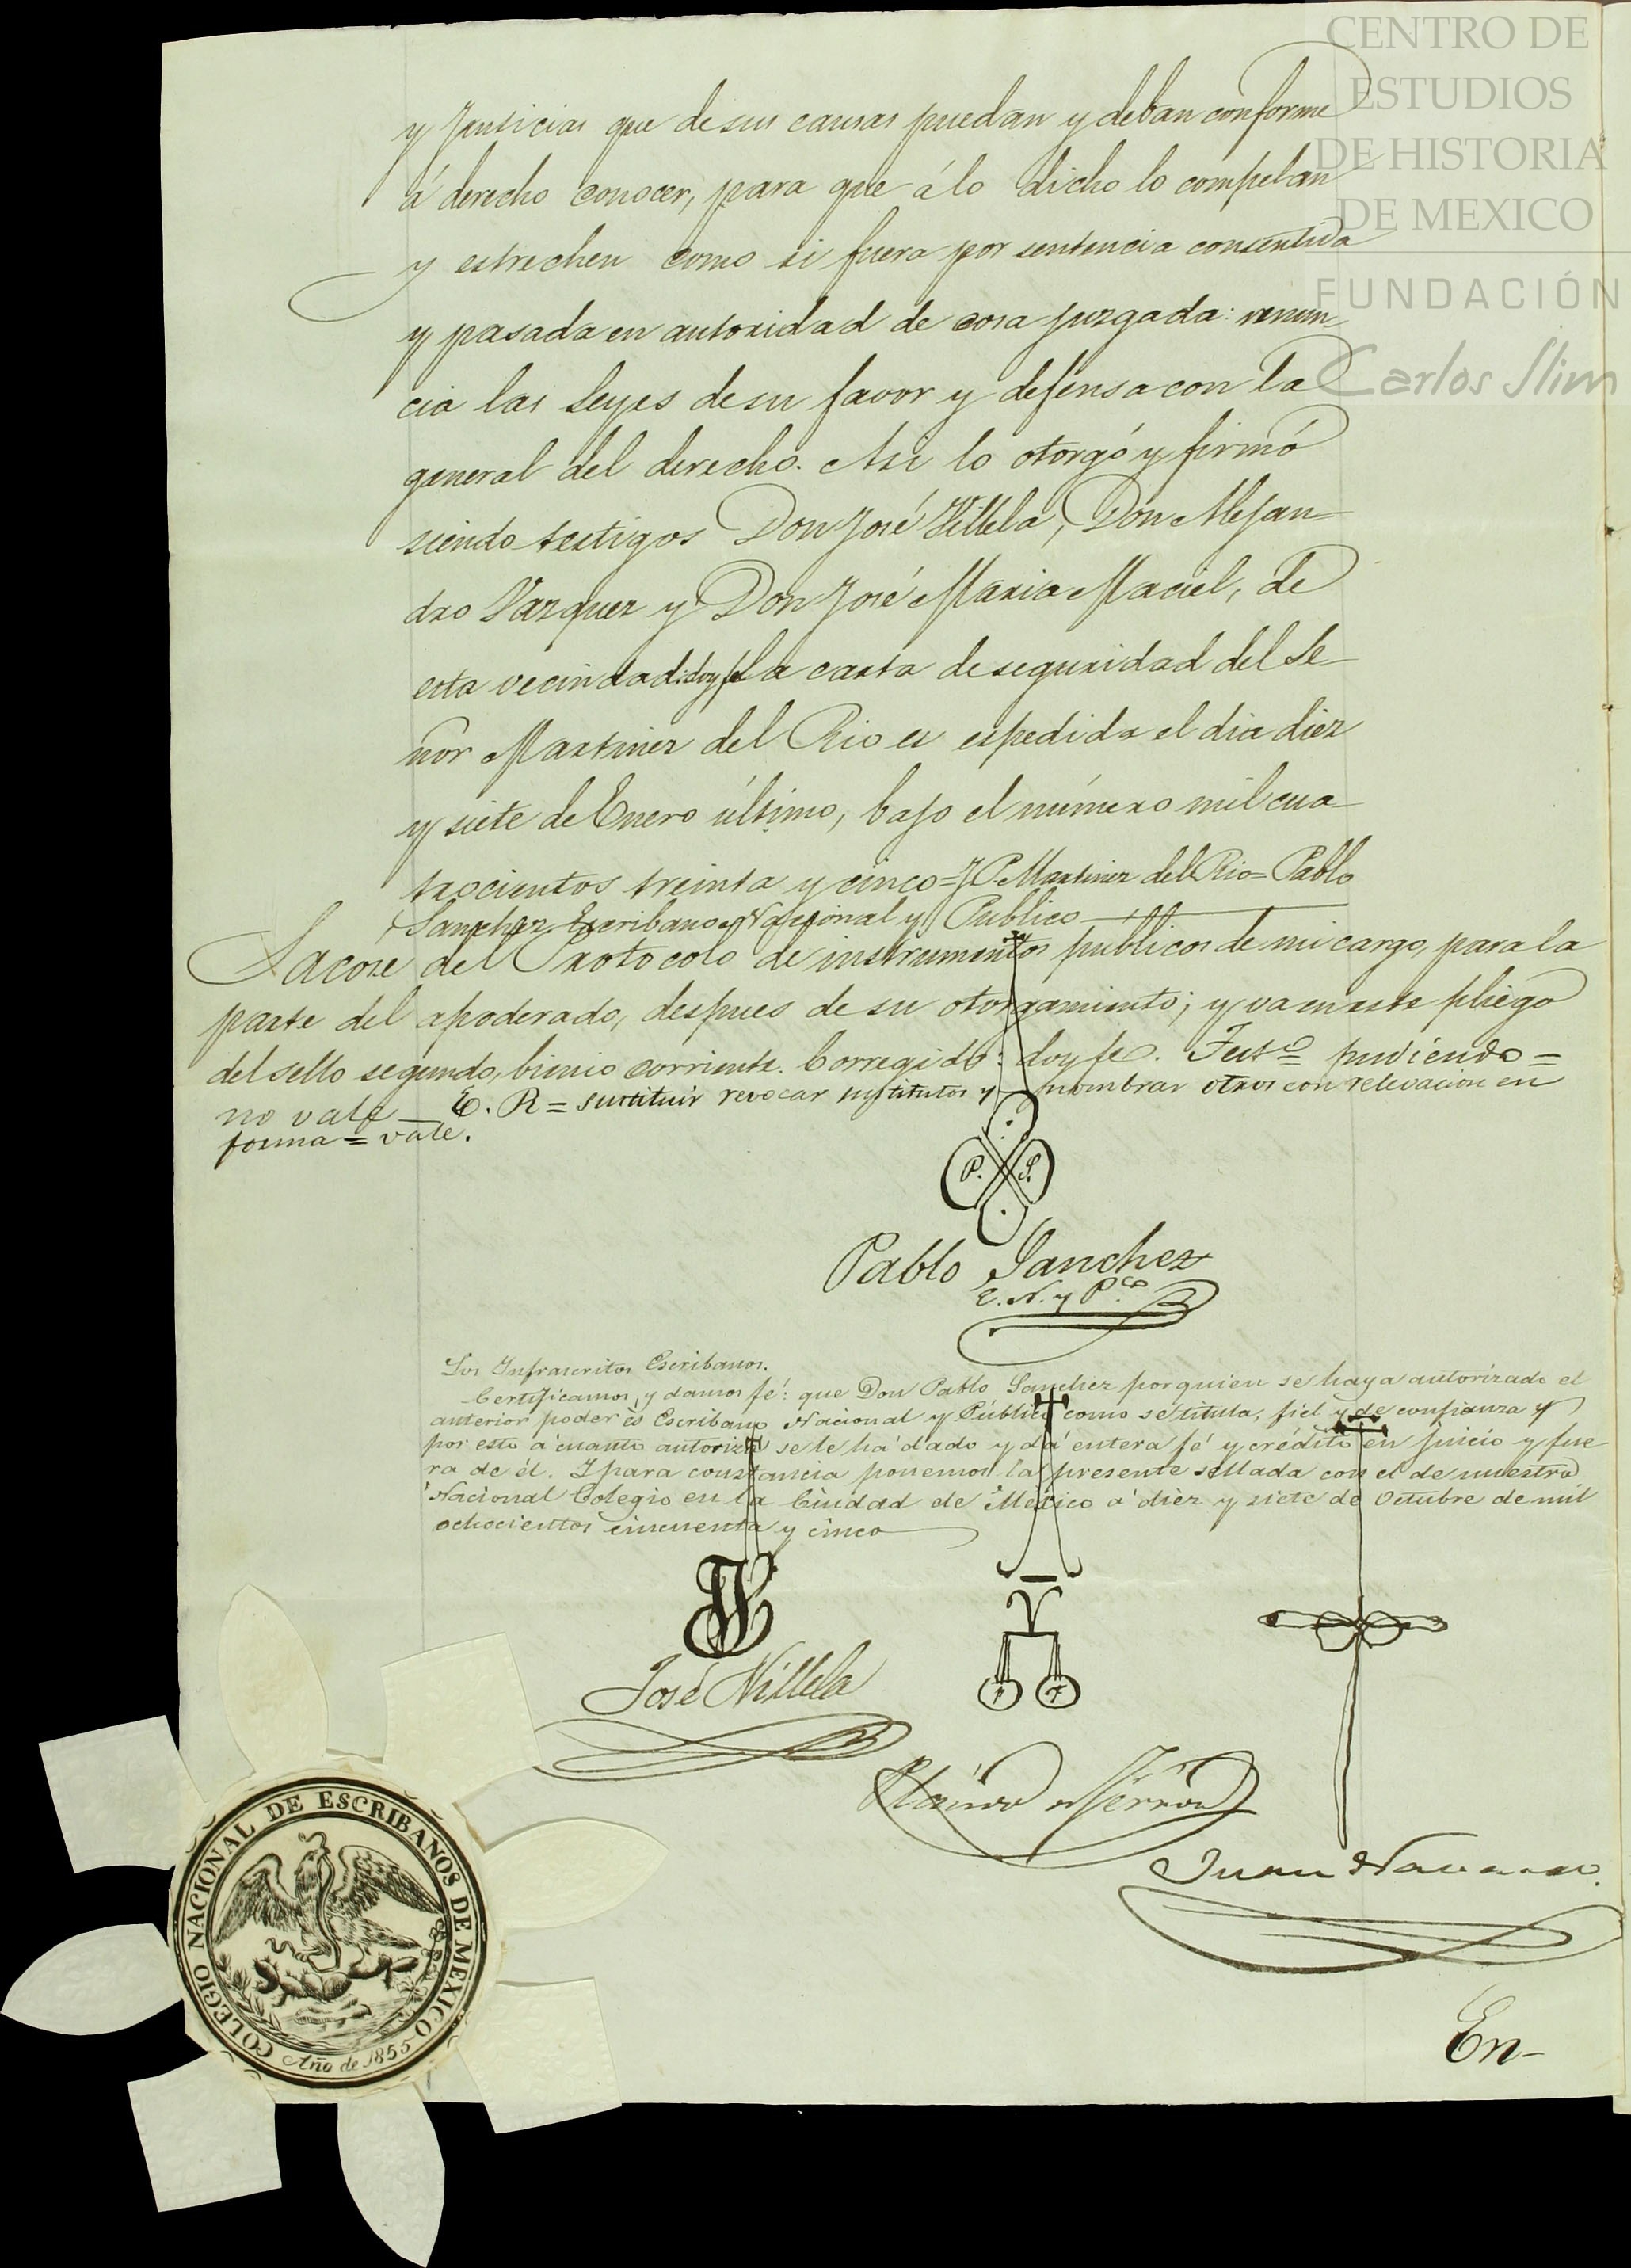 CENTRO DE
ESTUDIOS
DE HISTORIA
DE MEXICO
FUNDACIÓN
Carlos Slim
y Justicias que de sus causas puedan y deban conforme
á derecho conocer, para que á lo dicho lo compelan
y estrechen como si fuera por sentencia consentida
y pasada en autoridad de cosa juzgada: renun
cia las Leyes de su favor y defensa con la
general del derecho. Asi lo otorgó y firmó
siendo testigos Don José Villela, Don Alejan-
dro Vazquez y Don José Maria Maciel, de
esta vecindad: doy fe La carta de seguridad del Se-
ñor Martinez del Rio es espedida el dia diez
y siete de Enero último, bajo el número mil cua-
trocientos treinta y cinco = J. P. Martinez del Rio = Pablo
Sanchez Escribano Nacional y Publico
Sacose del Protocolo de instrumentos publicos de mi cargo, para la
parte del apoderado, despues de su otorgamiento; y va en este pliego
del sello segundo, bienio corriente. Corregido: doy fe. Testº = pudiendo =
no vale E. R = sustituir revocar sustitutos y nombrar otros con relevacion en
forma = vale.
P. S.
Pablo Sanchez
E. N. y P.co
Los Infrascritos Escribanos.
Certificamos, y damos fé: que Don Pablo Sanchez por quien se haya autorizado el
anterior poder és Escribano Nacional y Público como se titula, fiel y de confianza y
por esto á cuanto autoriza se le há dado y dá entera fé y crédito en juicio y fue
ra de él. Y para constancia ponemos la presente sellada con el de nuestro
Nacional Colegio en la Ciudad de México á diez y siete de Octubre de mil
ochocientos cincuenta y cinco
José Villela
Juan Navarro.
COLEGIO NACIONAL DE ESCRIBANOS DE MEXICO
Año de 1855
En-